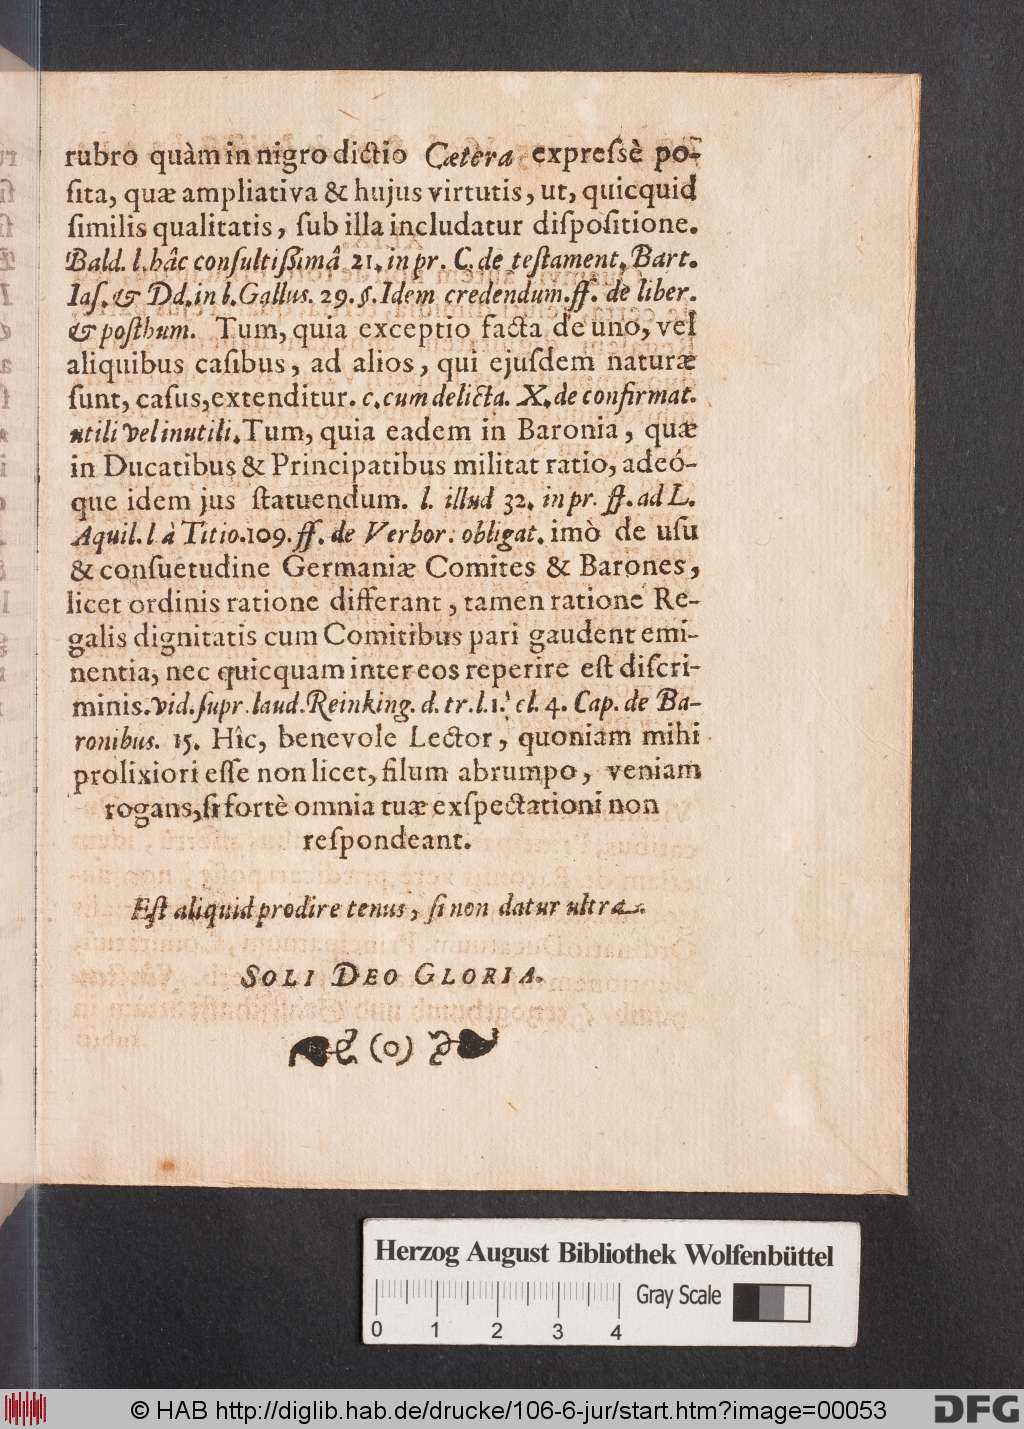 rubro quàm in nigro dictio Cætera expreſsè po-
ſita, quæ ampliativa & hujus virtutis, ut, quicquid
ſimilis qualitatis, ſub illa includatur diſpoſitione.
Bald. l. hâc conſultiſſimâ 21. in pr. C. de teſtament. Bart.
Iaſ. & Dd. in l. Gallus. 29. §. Idem credendum. ff. de liber.
& poſthum. Tum, quia exceptio facta de uno, vel
aliquibus caſibus, ad alios, qui ejuſdem naturæ
ſunt, caſus, extenditur. c. cum delicta. X. de confirmat.
utili vel inutili. Tum, quia eadem in Baronia, quæ
in Ducatibus & Principatibus militat ratio, adeó-
que idem jus ſtatuendum. l. illud 32. in pr. ff. ad L.
Aquil. l à Titio. 109. ff. de Verbor. obligat. imò de uſu
& conſuetudine Germaniæ Comites & Barones,
licet ordinis ratione differant, tamen ratione Re-
galis dignitatis cum Comitibus pari gaudent emi-
nentia, nec quicquam inter eos reperire eſt diſcri-
minis. vid. ſupr. laud. Reinking. d. tr. l. 1. cl. 4. Cap. de Ba-
ronibus. 15. Hîc, benevole Lector, quoniam mihi
prolixiori eſſe non licet, filum abrumpo, veniam
rogans, ſi fortè omnia tuæ exſpectationi non
reſpondeant.
Eſt aliquid prodire tenus, ſi non datur ultra.
SOLI DEO GLORIA.
(o)
Herzog August Bibliothek Wolfenbüttel
Gray Scale
0 1 2 3 4
© HAB http://diglib.hab.de/drucke/106-6-jur/start.htm?image=00053
DFG